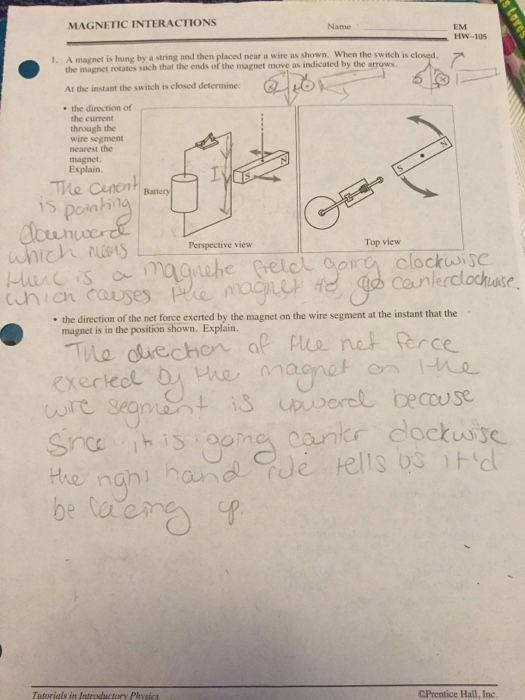 MAGNETIC INTERACTIONS
Name
EM
HW-105
1. A magnet is hung by a string and then placed near a wire as shown. When the switch is closed,
the magnet rotates such that the ends of the magnet move as indicated by the arrows.
At the instant the switch is closed determine:
• the direction of
the current
through the
wire segment
nearest the
magnet.
Explain.
Battery
I
S
N
Perspective view
S
N
Top view
The
is pointing
which
there is a magnetic field going clockwise
which causes the magnet to go
• the direction of the net force exerted by the magnet on the wire segment at the instant that the
magnet is in the position shown. Explain.
The direction of the net force
exerted by the magnet on the
wire segment is because
Since it is going clockwise
the right hand rule tells us it'd
be facing up.
Tutorials in Introductory Physics
©Prentice Hall, Inc.